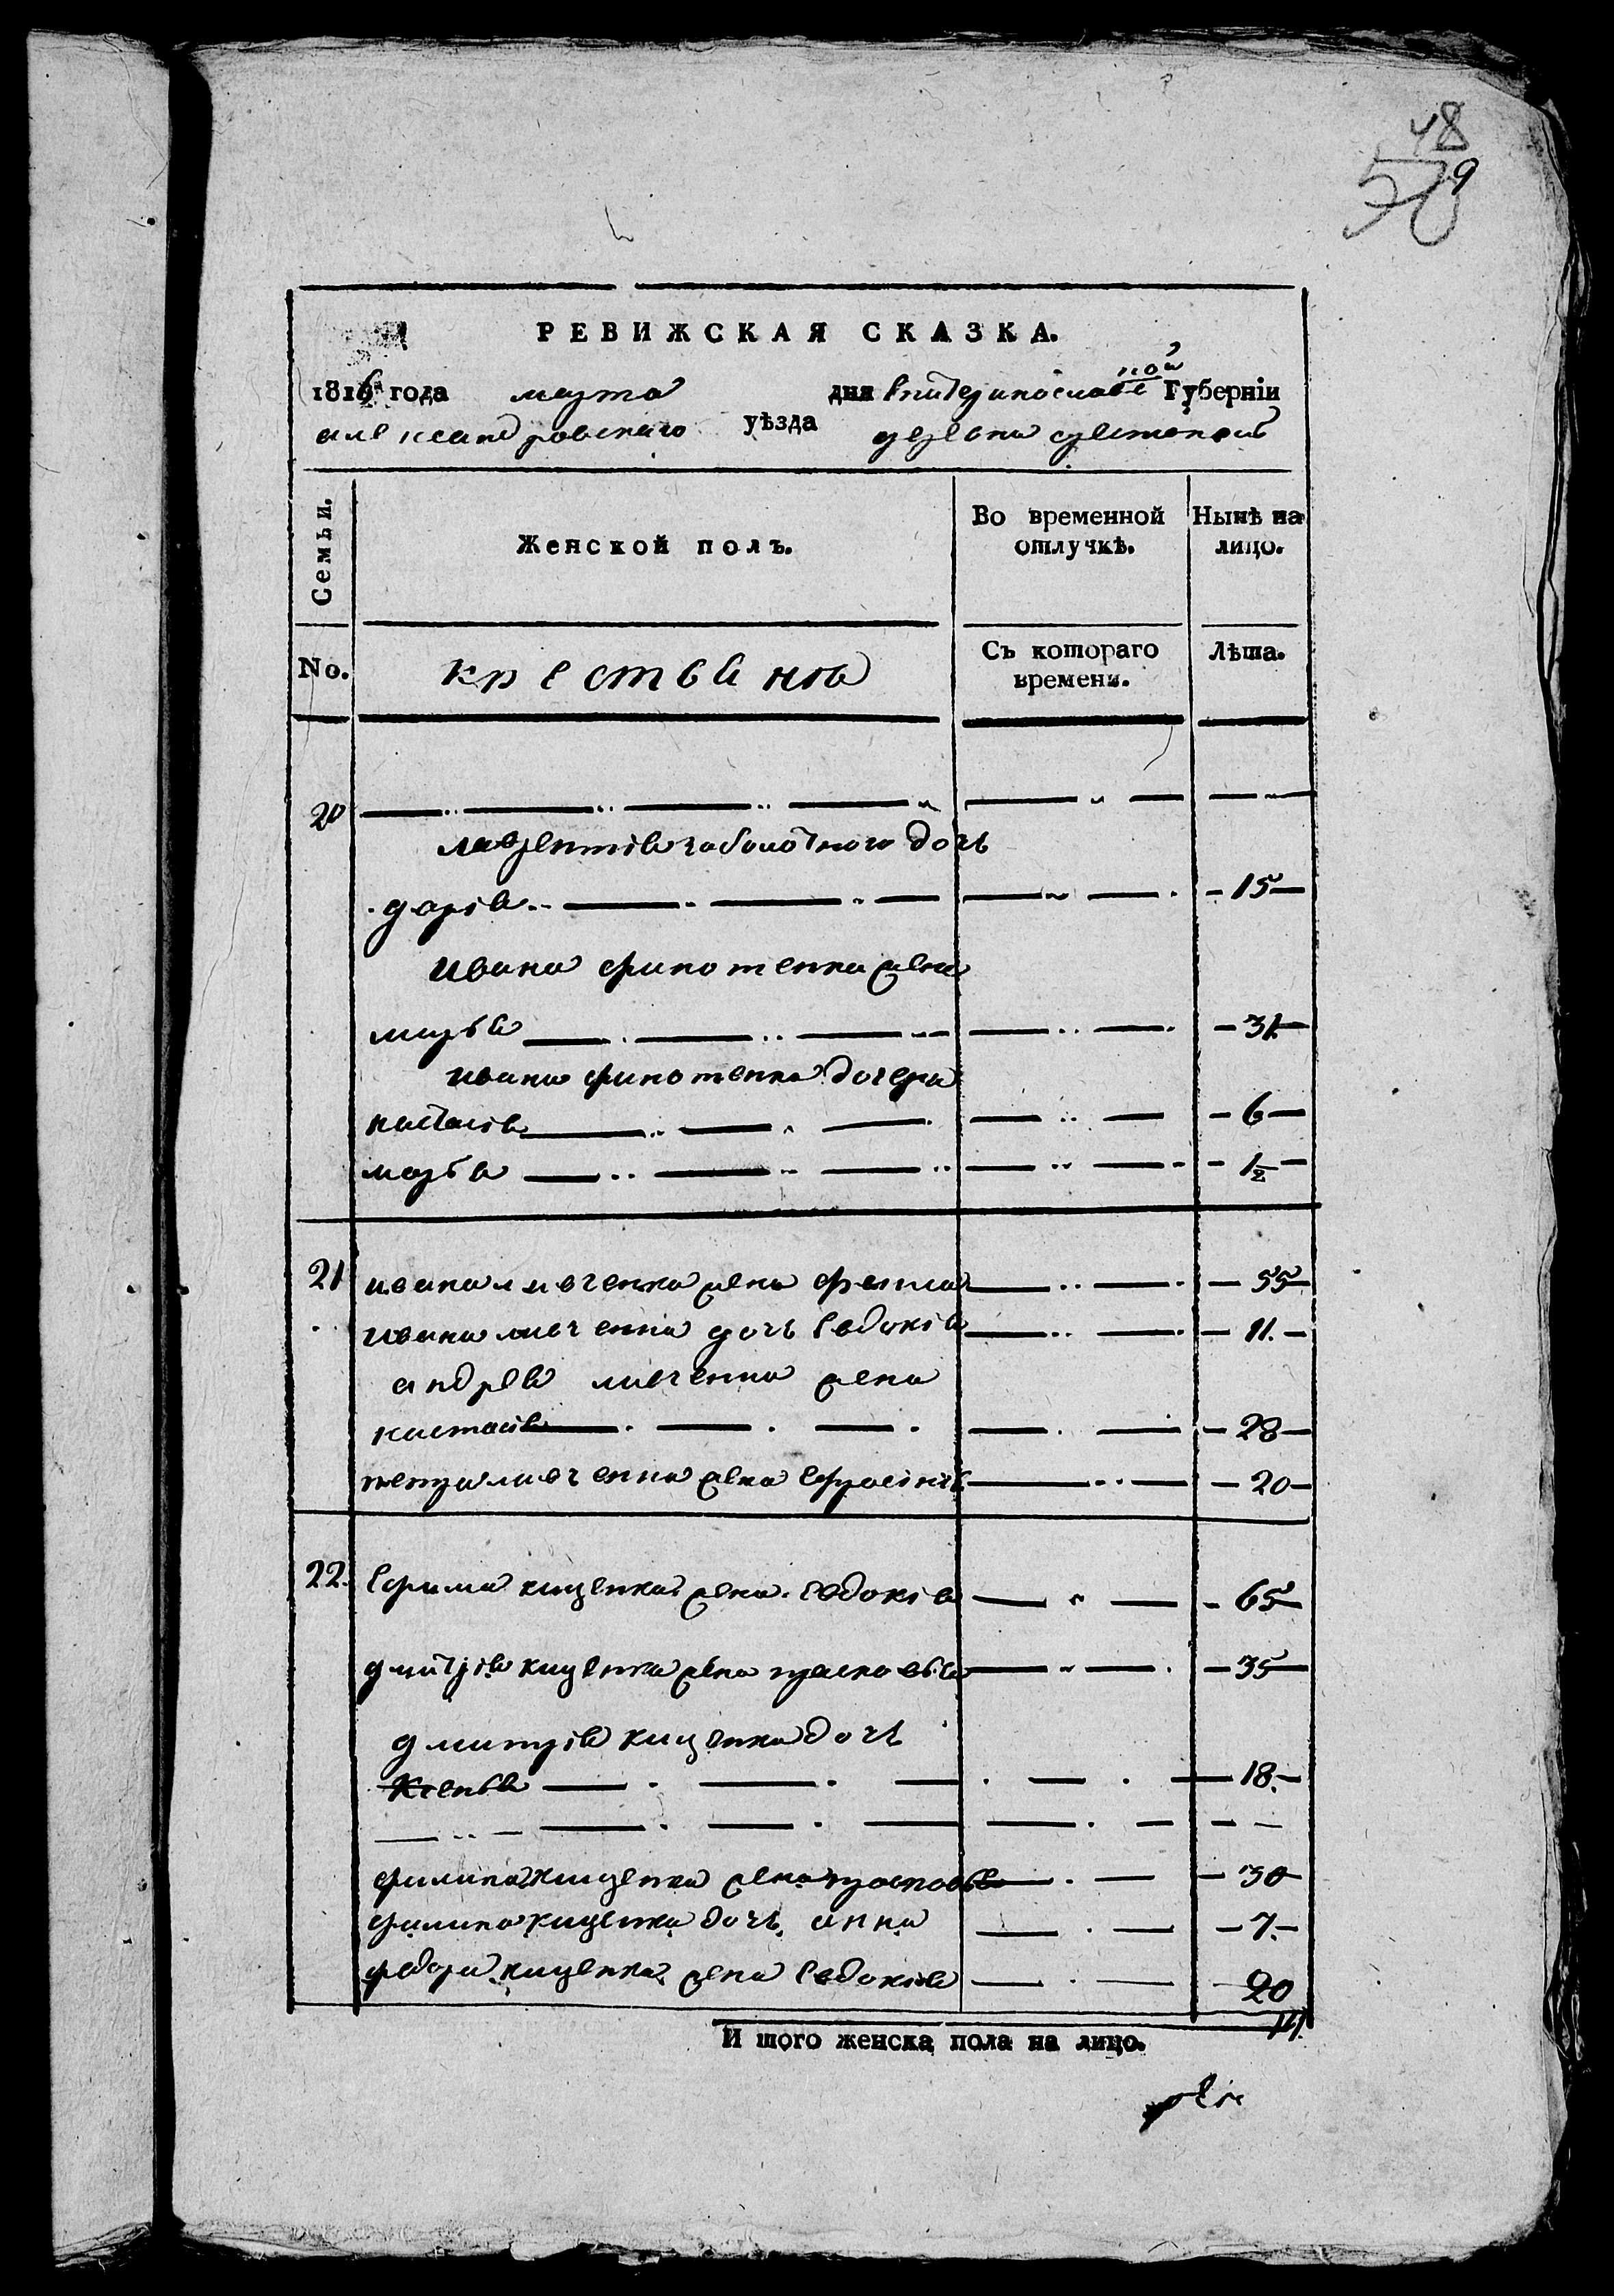 48
РЕВИЖСКАЯ СКАЗКА.
1816 года марта дня екатеринославской Губерніи
александровскаго уѣзда деревни
Семьи.
Женской полъ.
Во временной отлучкѣ.
Нынѣ на лицо.
No.
крестьяне
Съ котораго времени.
Лѣта.
20
лаврентія заболотного дочь
дарія 15
ивана филотенка жена
марья 31
ивана филотенка дочери
настасія 6
марья 1½
21 ивана левченка жена фекла 55
ивана левченка дочь евдокія 11.
андрея левченка жена
настасія 28
петра левченка жена ефросинія 20
22. ефима кищенка жена евдокія 65
дмитрія кищенка жена прасковья 35
дмитрія кищенка дочь
Ксенья 18.
филипа кищенка жена прасковья 30
филипа кищенка дочь анна 7.
федора кищенка жена евдокія 20
И того женска пола на лицо. 14